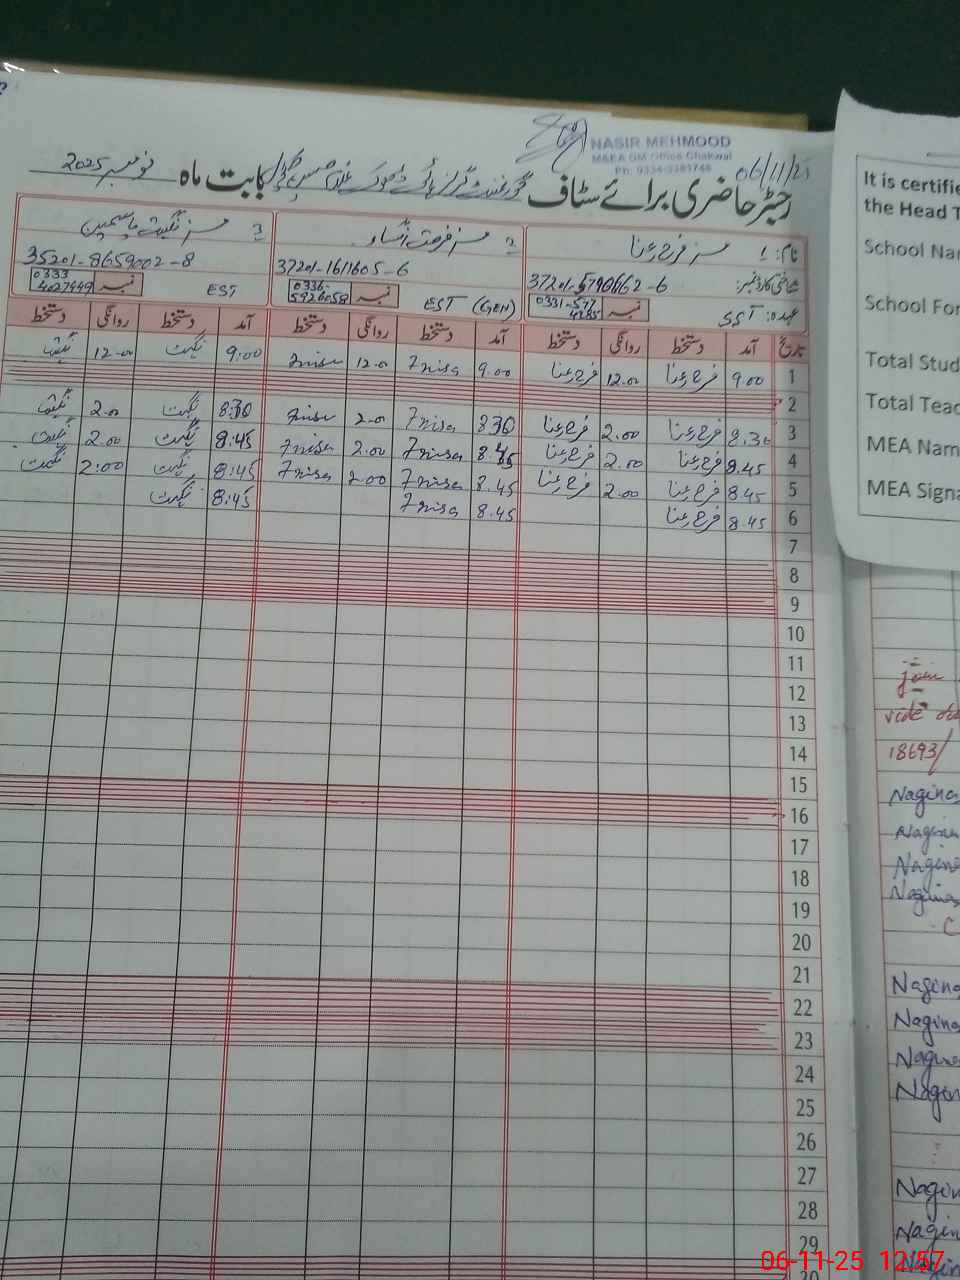 NASIR MEHMOOD
M&EA DM Office Chakwal
06/11/25
رجسٹر حاضری برائے سٹاف
بابت ماہ نومبر 2025
نام: 1 مسز فرح رعنا
2 مسز فرحت النساء
3 مسز نگہت یاسمین
شناختی کارڈ نمبر: 37201-5790662-6
37201-1611605-6
35201-8659002-8
عہدہ: SST نمبر 0331-577
EST (GEN) نمبر 0336-5926058
EST نمبر 0333 4027449
تاریخ آمد دستخط روانگی دستخط آمد دستخط روانگی دستخط آمد دستخط روانگی دستخط
1 9.00 فرح رعنا 12.00 فرح رعنا 9.00 7nisa 12.00 7nisa 9:00 نگہت 12.00 نگہت
2
3 8.30 فرح رعنا 2.00 فرح رعنا 8.30 7nisa 2.00 7nisa 8:30 نگہت 2.00 نگہت
4 8.45 فرح رعنا 2.00 فرح رعنا 8.45 7nisa 2.00 7nisa 8:45 نگہت 2.00 نگہت
5 8.45 فرح رعنا 2.00 فرح رعنا 8.45 7nisa 2.00 7nisa 8:45 نگہت 2:00 نگہت
6 8.45 فرح رعنا 8.45 7nisa 8:45 نگہت
7
8
9
10
11
12
13
14
15
16
17
18
19
20
21
22
23
24
25
26
27
28
29
It is certifie
the Head T
School Nar
School For
Total Stud
Total Teac
MEA Nam
MEA Signa
join
vide
18693/
Nagina
Nagina
Nagina
Nagina
Nagina
Nagina
Nagina
Nagina
06-11-25 12:57